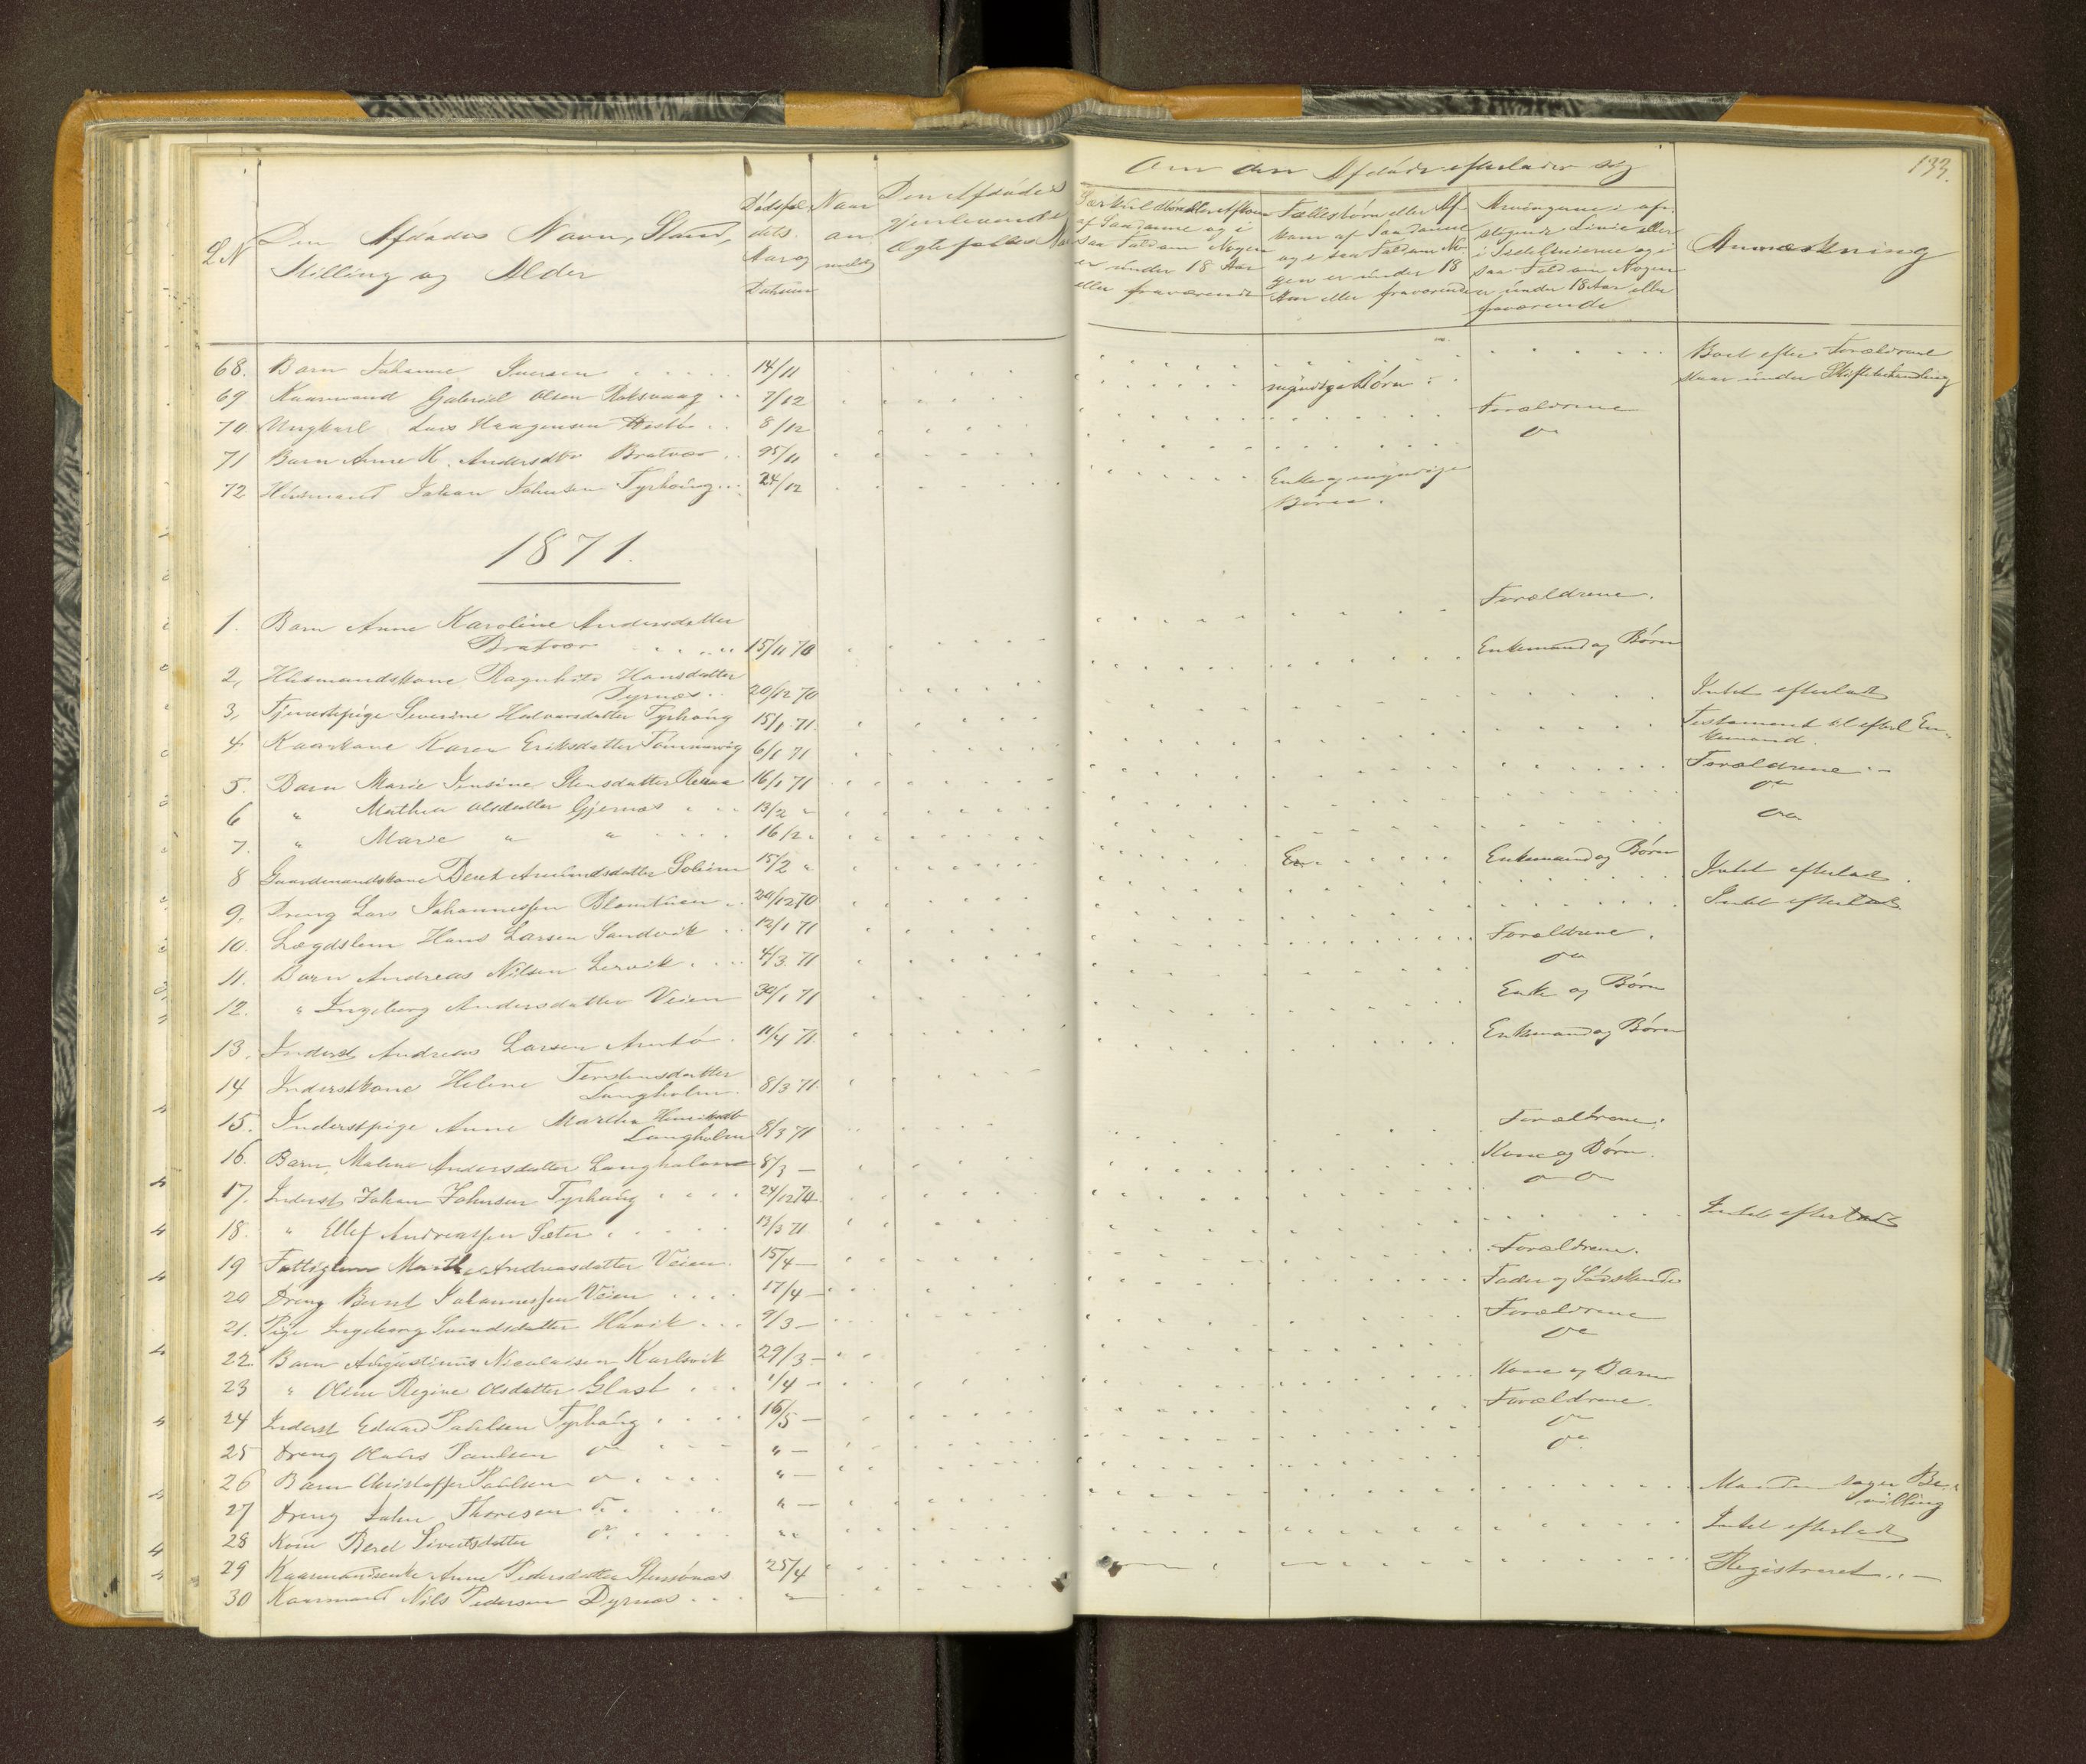 133.
L N
Den Afdødes Navn, Stand,
Stilling og Alder
Dødsfal-
dets
Aar og
Datum
Naar
an-
meldt
Den Afdødes
gjenlevende
Ægtefælles Navn
Om den Afdøde efterlader sig
Særkuldbørn eller Afkom
af Saadanne og i
saa Fald om Nogen
er under 18 Aar
eller fraværende
Fællesbørn eller Af-
kom af Saadanne
og i saa Fald om No-
gen er under 18
Aar eller fraværende
Arvingerne i op-
stigende Linie eller
i Sidelinierne og i
saa Fald om Nogen
er under 18 Aar eller
fraværende
Anmærkning
68. Barn Johanne Iversen 14/11 Boet efter Forældrene
staar under Skiftebehandling
69 Kaarmand Gabriel Olsen Roksvaag 7/12 myndige Børn
70 Ungkarl Lars Haagensen 8/12 Forældrene
71 Barn Anne K. Andersdtr Bratvær 25/11 do
72 Husmand Johan Johnsen Tyrhaug 24/12 Enke og myndige
Børn.
1871.
1. Barn Anne Karoline Andersdatter Forældrene.
Bratvær 15/11 70
2, Husmandskone Ragnhild Hansdatter Enkemand og Børn
Dyrnæs 20/12 70
3, Tjenestepige Severine Halvorsdatter Tyrhaug 15/1 71. Intet efterladt
4 Kaarkone Karen Eriksdatter Tømmervig 6/1 71 Testament til efterl En-
kemand.
5. Barn Marie Jensine Stensdatter 16/1 71 Forældrene
6 " Mathea Olsdatter Gjernæs 13/2 " do
7. " Marie " " 16/2 " do
8 Gaardmandskone Beret Amundsdatter Soleim 15/2 " En Enkemand og Børn
9. Dreng Lars Johannessen 20/12 70 Intet efterladt
10. Lægdslem Hans Larsen Sandvik 12/1 71 Intet efterladt
11. Barn Andreas Nilsen Lervik 4/3 71 Forældrene.
12. " Ingeborg Andersdatter Veien 30/1 71 do
13. Inderst Andreas Larsen 11/4 71. Enke og Børn
14 Inderstkone Helene Torstensdatter Enkemand og Børn
Langholm. 8/3 71.
15. Inderstpige Anne Martha Henriksdtr
Langholm 8/3 71
16. Barn Malene Andersdatter Langholmen 8/3 — Forældrene.
17. Inderst Johan Johnsen Tyrhaug 24/12 70 Kone og Børn.
18. " Ellef Andreassen Sæter 13/3 71 do do
19 Fattiglem Marthe Andreasdatter Veien. 15/4 — Intet efterladt
20 Dreng Bernt Johannessen Veien 17/4 — Forældrene.
21. Pige Ingeborg Svendsdatter Havik 9/3 — Fader og Sødskende
22. Barn Augustinus Nicolaisen Karlsvik 29/3 — Forældrene
23 " Oline Regine Olsdatter Glast 1/4 — do
24 Inderst Edvard Paulsen Tyrhaug 16/5 — Kone og Barn
25 Dreng Paulsen do " — Forældrene.
26 Barn Christoffer Paulsen do " — do
27 Dreng John Thoresen do " — do
28 Kone Beret Sivertsdatter do " Manden søger Be-
villing
29 Kaarmandsenke Anne Pedersdatter 25/4 Intet efterladt
30 Kaarmand Nils Pedersen Dyrnæs " Registreret